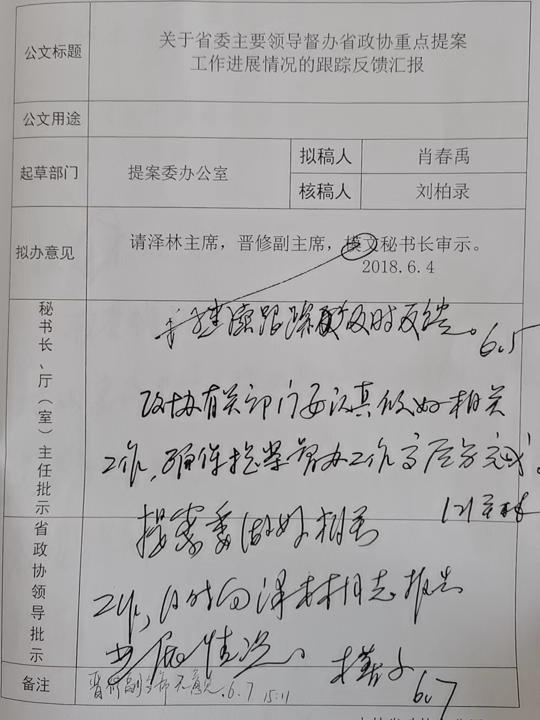 公文标题
关于省委主要领导督办省政协重点提案
工作进展情况的跟踪反馈汇报
公文用途
起草部门
提案委办公室
拟稿人
肖春禹
核稿人
刘柏录
拟办意见
请泽林主席，晋修副主席，模文秘书长审示。
2018.6.4
秘书长、厅（室）主任批示
继续跟踪及时反馈。
6.5
政协有关部门要认真做好相关
工作，确保提案督办工作高质量完成。
省政协领导批示
提案委做好相关
工作，及时向泽林同志报告
进展情况。
6.7
备注
晋修副主席无意见.6.7 15:11